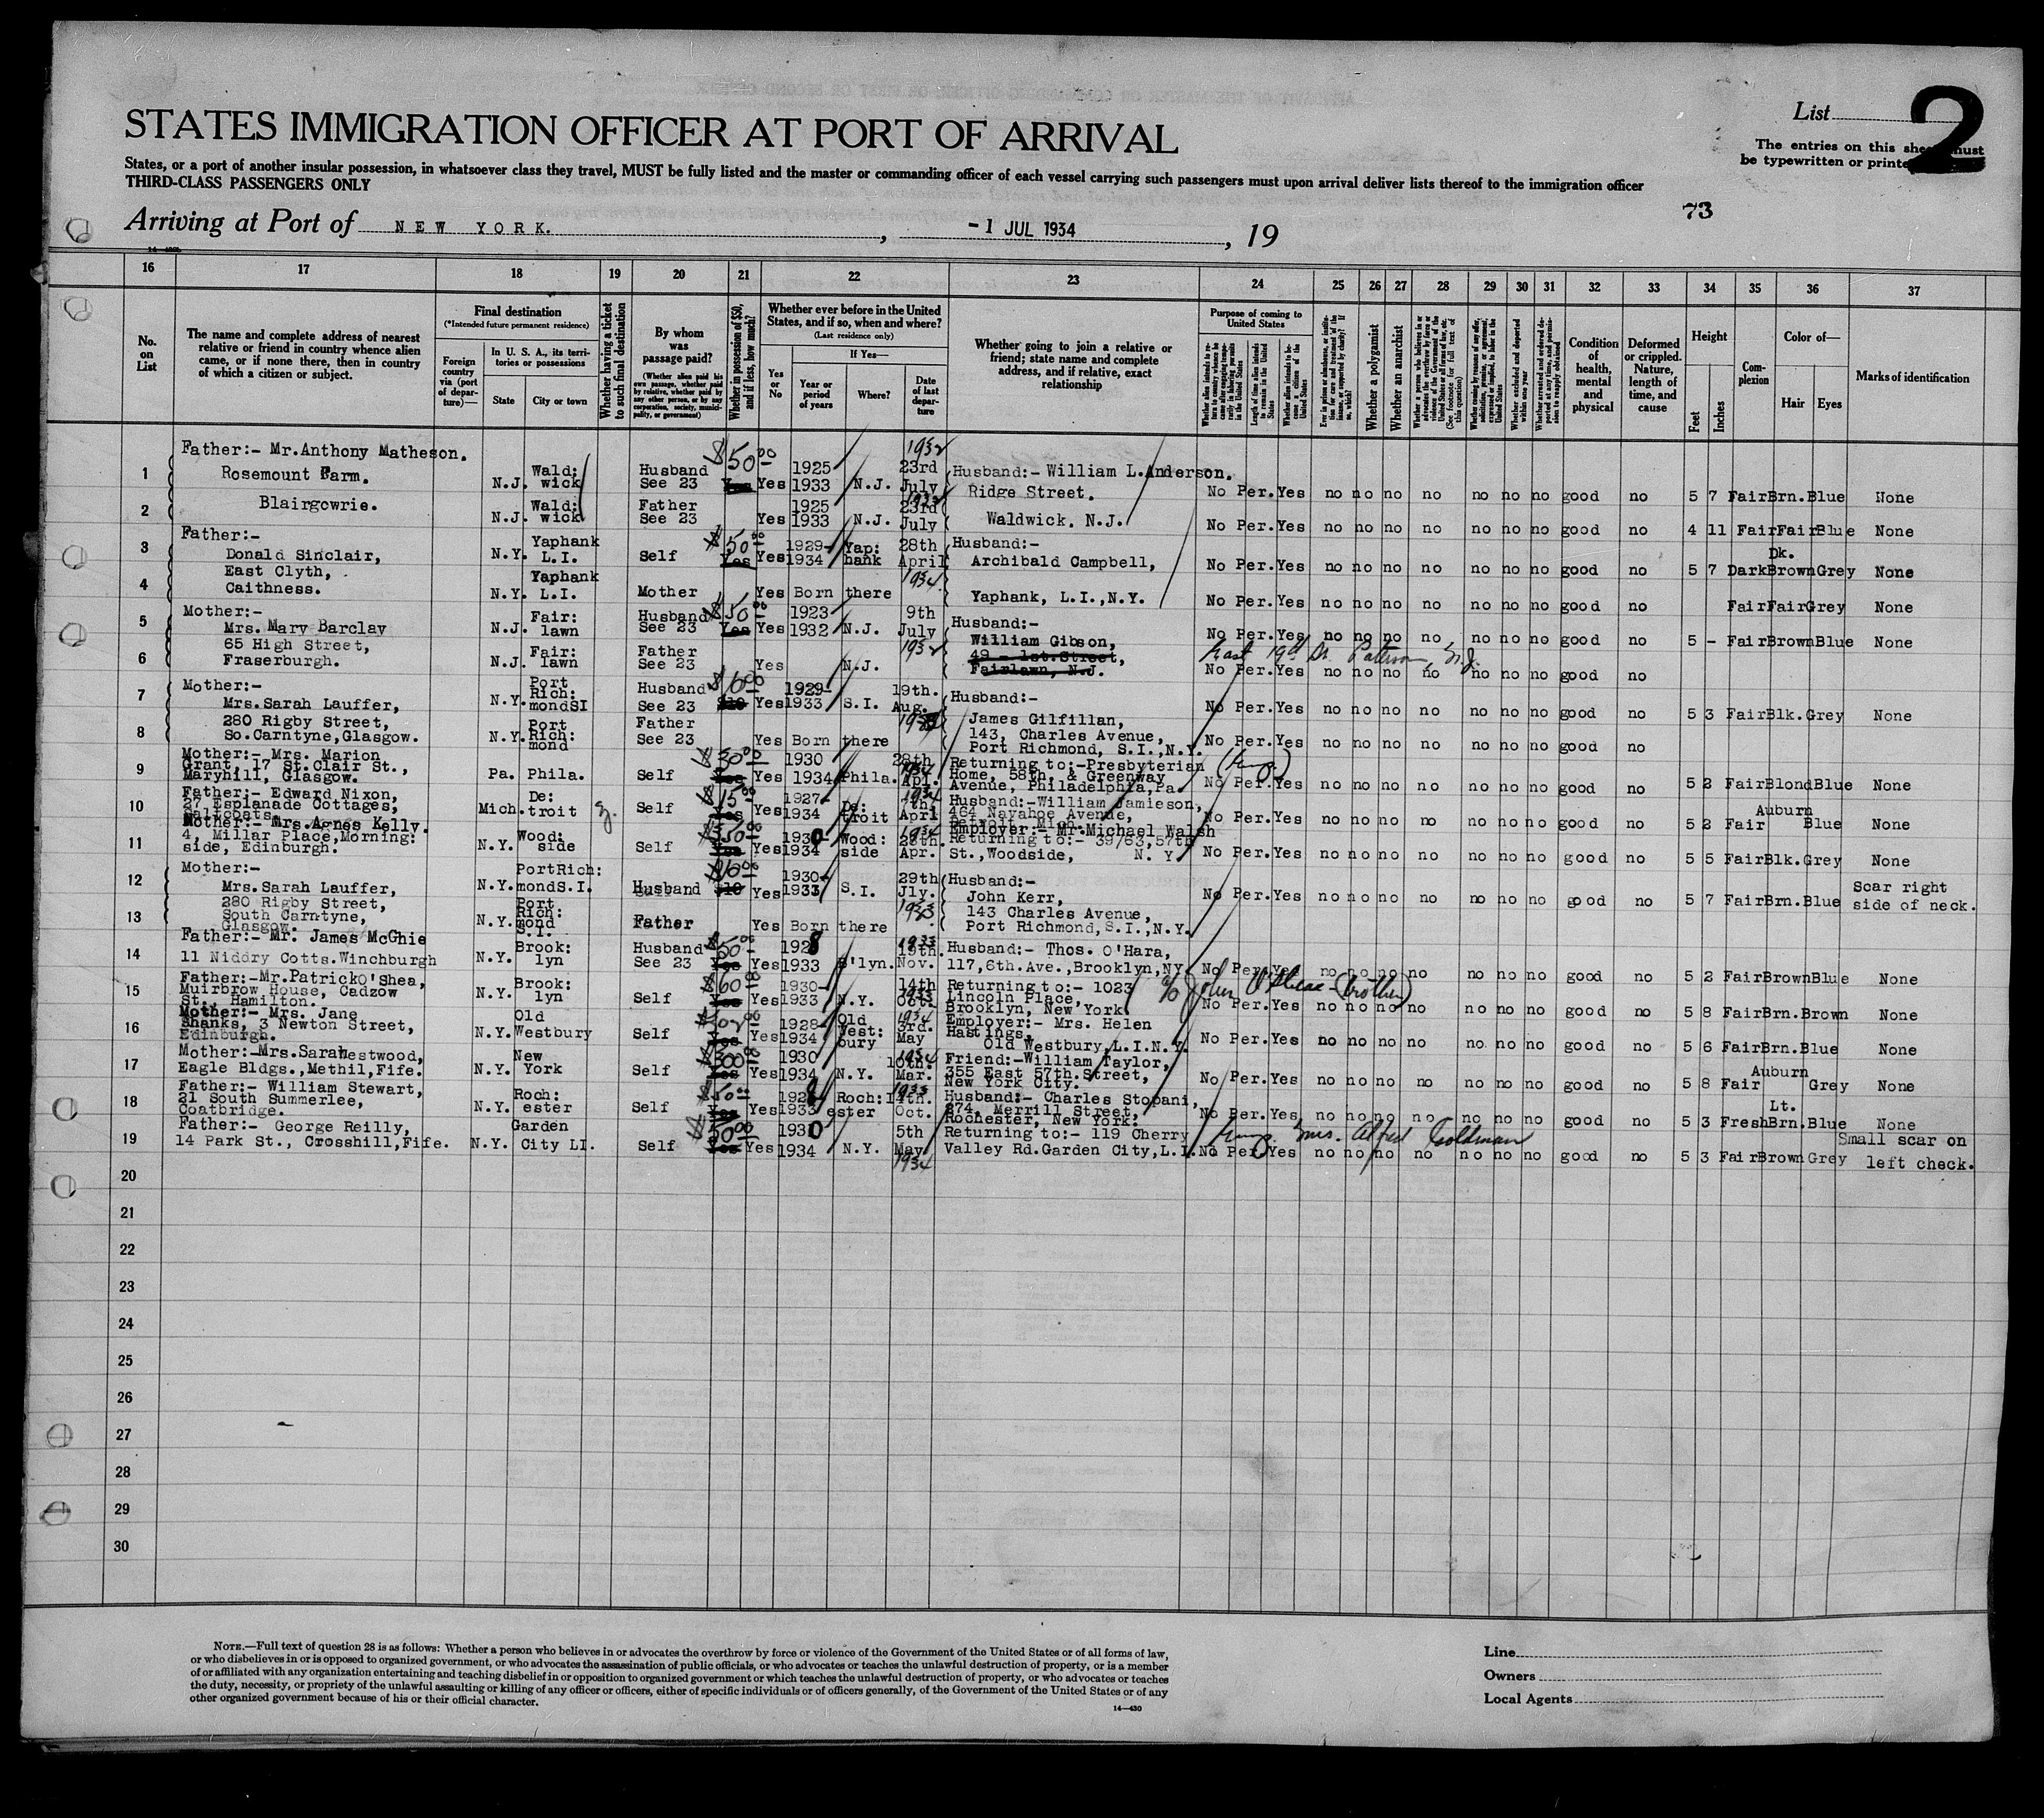 STATES IMMIGRATION OFFICER AT PORT OF ARRIVAL
List 2
The entries on this sheet must
be typewritten or printed
States, or a port of another insular possession, in whatsoever class they travel, MUST be fully listed and the master or commanding officer of each vessel carrying such passengers must upon arrival deliver lists thereof to the immigration officer
THIRD-CLASS PASSENGERS ONLY
73
Arriving at Port of NEW YORK. , -1 JUL 1934 , 19
16 17 18 19 20 21 22 23 24 25 26 27 28 29 30 31 32 33 34 35 36 37
No. on List
The name and complete address of nearest relative or friend in country whence alien came, or if none there, then in country of which a citizen or subject.
Final destination
(*Intended future permanent residence)
Foreign country via (port of departure)—
In U. S. A., its territories or possessions
State City or town
Whether having a ticket to such final destination
By whom was passage paid?
(Whether alien paid his own passage, whether paid by relative, whether paid by any other person, or by any corporation, society, municipality, or government)
Whether in possession of $50, and if less, how much?
Whether ever before in the United States, and if so, when and where?
(Last residence only)
Yes or No
If Yes—
Year or period of years
Where?
Date of last departure
Whether going to join a relative or friend; state name and complete address, and if relative, exact relationship
Purpose of coming to United States
Whether a polygamist
Whether an anarchist
Condition of health, mental and physical
Deformed or crippled. Nature, length of time, and cause
Height
Feet Inches
Complexion
Color of—
Hair Eyes
Marks of identification
1 Father:- Mr.Anthony Matheson. Rosemount Farm. N.J. Wald: wick Husband See 23 $50 00 Yes Yes 1925 1933 N.J. 1932 23rd July Husband:- William L.Anderson. Ridge Street. No Per. Yes no no no no no no no good no 5 7 Fair Brn. Blue None
2 Blairgowrie. N.J. Wald: wick Father See 23 Yes 1925 1933 N.J. 23rd July Waldwick. N.J. No Per. Yes no no no no no no no good no 4 11 Fair Fair Blue None
3 Father:- Donald Sinclair, N.Y. Yaphank L.I. Self $50 00 Yes Yes 1929- 1934 Yap: hank 28th April Husband:- Archibald Campbell, No Per. Yes no no no no no no no good no 5 7 Dark Dk. Brown Grey None
4 East Clyth, Caithness. N.Y. Yaphank L.I. Mother Yes Born there 1934 Yaphank, L.I.,N.Y. No Per. Yes no no no no no no no good no Fair Fair Grey None
5 Mother:- Mrs. Mary Barclay N.J. Fair: lawn Husband See 23 $50 00 Yes Yes 1923 1932 N.J. 9th July Husband:- William Gibson, No Per. Yes no no no no no no no good no 5 - Fair Brown Blue None
6 65 High Street, Fraserburgh. N.J. Fair: lawn Father See 23 Yes N.J. 1932 49 - 1st.Street, Fairlawn, N.J. East 19th St. Paterson, N.J. No Per. Yes no no no no no no no good no
7 Mother:- Mrs.Sarah Lauffer, N.Y. Port Rich: mondSI Husband See 23 $10 00 $10 Yes 1929- 1933 S.I. 19th. Aug. Husband:- James Gilfillan, No Per. Yes no no no no no no no good no 5 3 Fair Blk. Grey None
8 280 Rigby Street, So.Carntyne,Glasgow. N.Y. Port Rich: mond Father See 23 Yes Born there 143, Charles Avenue, Port Richmond, S.I.,N.Y. No Per. Yes no no no no no no no good no
9 Mother:- Mrs. Marion Grant, 17 St.Clair St., Maryhill, Glasgow. Pa. Phila. Self Yes Yes 1930 1934 Phila. 28th Apl. Returning to:-Presbyterian Home, 58th, & Greenway Avenue, Philadelphia,Pa. No Per. Yes no no no no no no no good no 5 2 Fair Blond Blue None
10 Father:- Edward Nixon, 27 Esplanade Cottages, Saltcoats. Mich. De: troit Self $15 00 Yes Yes 1927- 1934 De: troit 1934 7th. April Husband:-William Jamieson, 464 Navahoe Avenue, Detroit, Mich. No Per. Yes no no no no no no no good no 5 2 Fair Auburn Blue None
11 Mother:- Mrs.Agnes Kelly. 4, Millar Place,Morning: side, Edinburgh. N.Y. Wood: side Self Yes Yes 1930 1934 Wood: side 1934 28th. Apr. Employer:- Mr.Michael Walsh Returning to:- 39/63,57th St.,Woodside, N. Y. No Per. Yes no no no no no no no good no 5 5 Fair Blk. Grey None
12 Mother:- Mrs.Sarah Lauffer, N.Y. PortRich: mondS.I. Husband $10 00 $10 Yes 1930- 1933 S.I. 29th Jly. Husband:- John Kerr, No Per. Yes no no no no no no no good no 5 7 Fair Brn. Blue Scar right side of neck.
13 280 Rigby Street, South Carntyne, Glasgow. N.Y. Port Rich: mond S.I. Father Yes Born there 1933 143 Charles Avenue, Port Richmond,S.I.,N.Y.
14 Father:- Mr. James McGhie 11 Niddry Cotts.Winchburgh N.Y. Brook: lyn Husband See 23 $50 00 Yes Yes 1928 1933 B'lyn. 1933 Nov. Husband:- Thos. O'Hara, 117,6th.Ave.,Brooklyn,NY. No Per. Yes no no no no no no no good no 5 2 Fair Brown Blue None
15 Father:-Mr.PatrickO'Shea, Muirbrow House, Cadzow St., Hamilton. N.Y. Brook: lyn Self $60 Yes Yes 1930- 1933 N.Y. 14th Oct. Returning to:- 1023 Lincoln Place, Brooklyn, New York. ( c/o John O'Shea - (brother) No Per. Yes no no no no no no no good no 5 8 Fair Brn. Brown None
16 Mother:- Mrs. Jane Shanks, 3 Newton Street, Edinburgh. N.Y. Old Westbury Self Yes Yes 1928- 1934 Old West: bury 1934 3rd. May Employer:- Mrs. Helen Hastings, Old Westbury,L.I.N.Y. No Per. Yes no no no no no no no good no 5 6 Fair Brn. Blue None
17 Mother:-Mrs.Sarah Westwood, Eagle Bldgs.,Methil,Fife. N.Y. New York Self Yes Yes 1930 1934 N.Y. 1934 10th. Mar. Friend:-William Taylor, 355 East 57th.Street, New York City. No Per. Yes no no no no no no no good no 5 8 Fair Auburn Grey None
18 Father:- William Stewart, 21 South Summerlee, Coatbridge. N.Y. Roch: ester Self $50 00 Yes Yes 1933 Roch: ester 1933 14th. Oct. Husband:- Charles Stopani, 274, Merrill Street, Rochester, New York. No Per. Yes no no no no no no no good no 5 3 Fresh Lt. Brn. Blue None
19 Father:- George Reilly, 14 Park St., Crosshill,Fife. N.Y. Garden City LI. Self Yes Yes 1930 1934 N.Y. 5th May 1934 Returning to:- 119 Cherry Valley Rd.Garden City,L.I. Mrs. Alfred Goldman No Per. Yes no no no no no no no good no 5 3 Fair Brown Grey Small scar on left check.
20
21
22
23
24
25
26
27
28
29
30
NOTE.—Full text of question 28 is as follows: Whether a person who believes in or advocates the overthrow by force or violence of the Government of the United States or of all forms of law,
or who disbelieves in or is opposed to organized government, or who advocates the assassination of public officials, or who advocates or teaches the unlawful destruction of property, or is a member
of or affiliated with any organization entertaining and teaching disbelief in or opposition to organized government or which teaches the unlawful destruction of property, or who advocates or teaches
the duty, necessity, or propriety of the unlawful assaulting or killing of any officer or officers, either of specific individuals or of officers generally, of the Government of the United States or of any
other organized government because of his or their official character.
14—430
Line
Owners
Local Agents